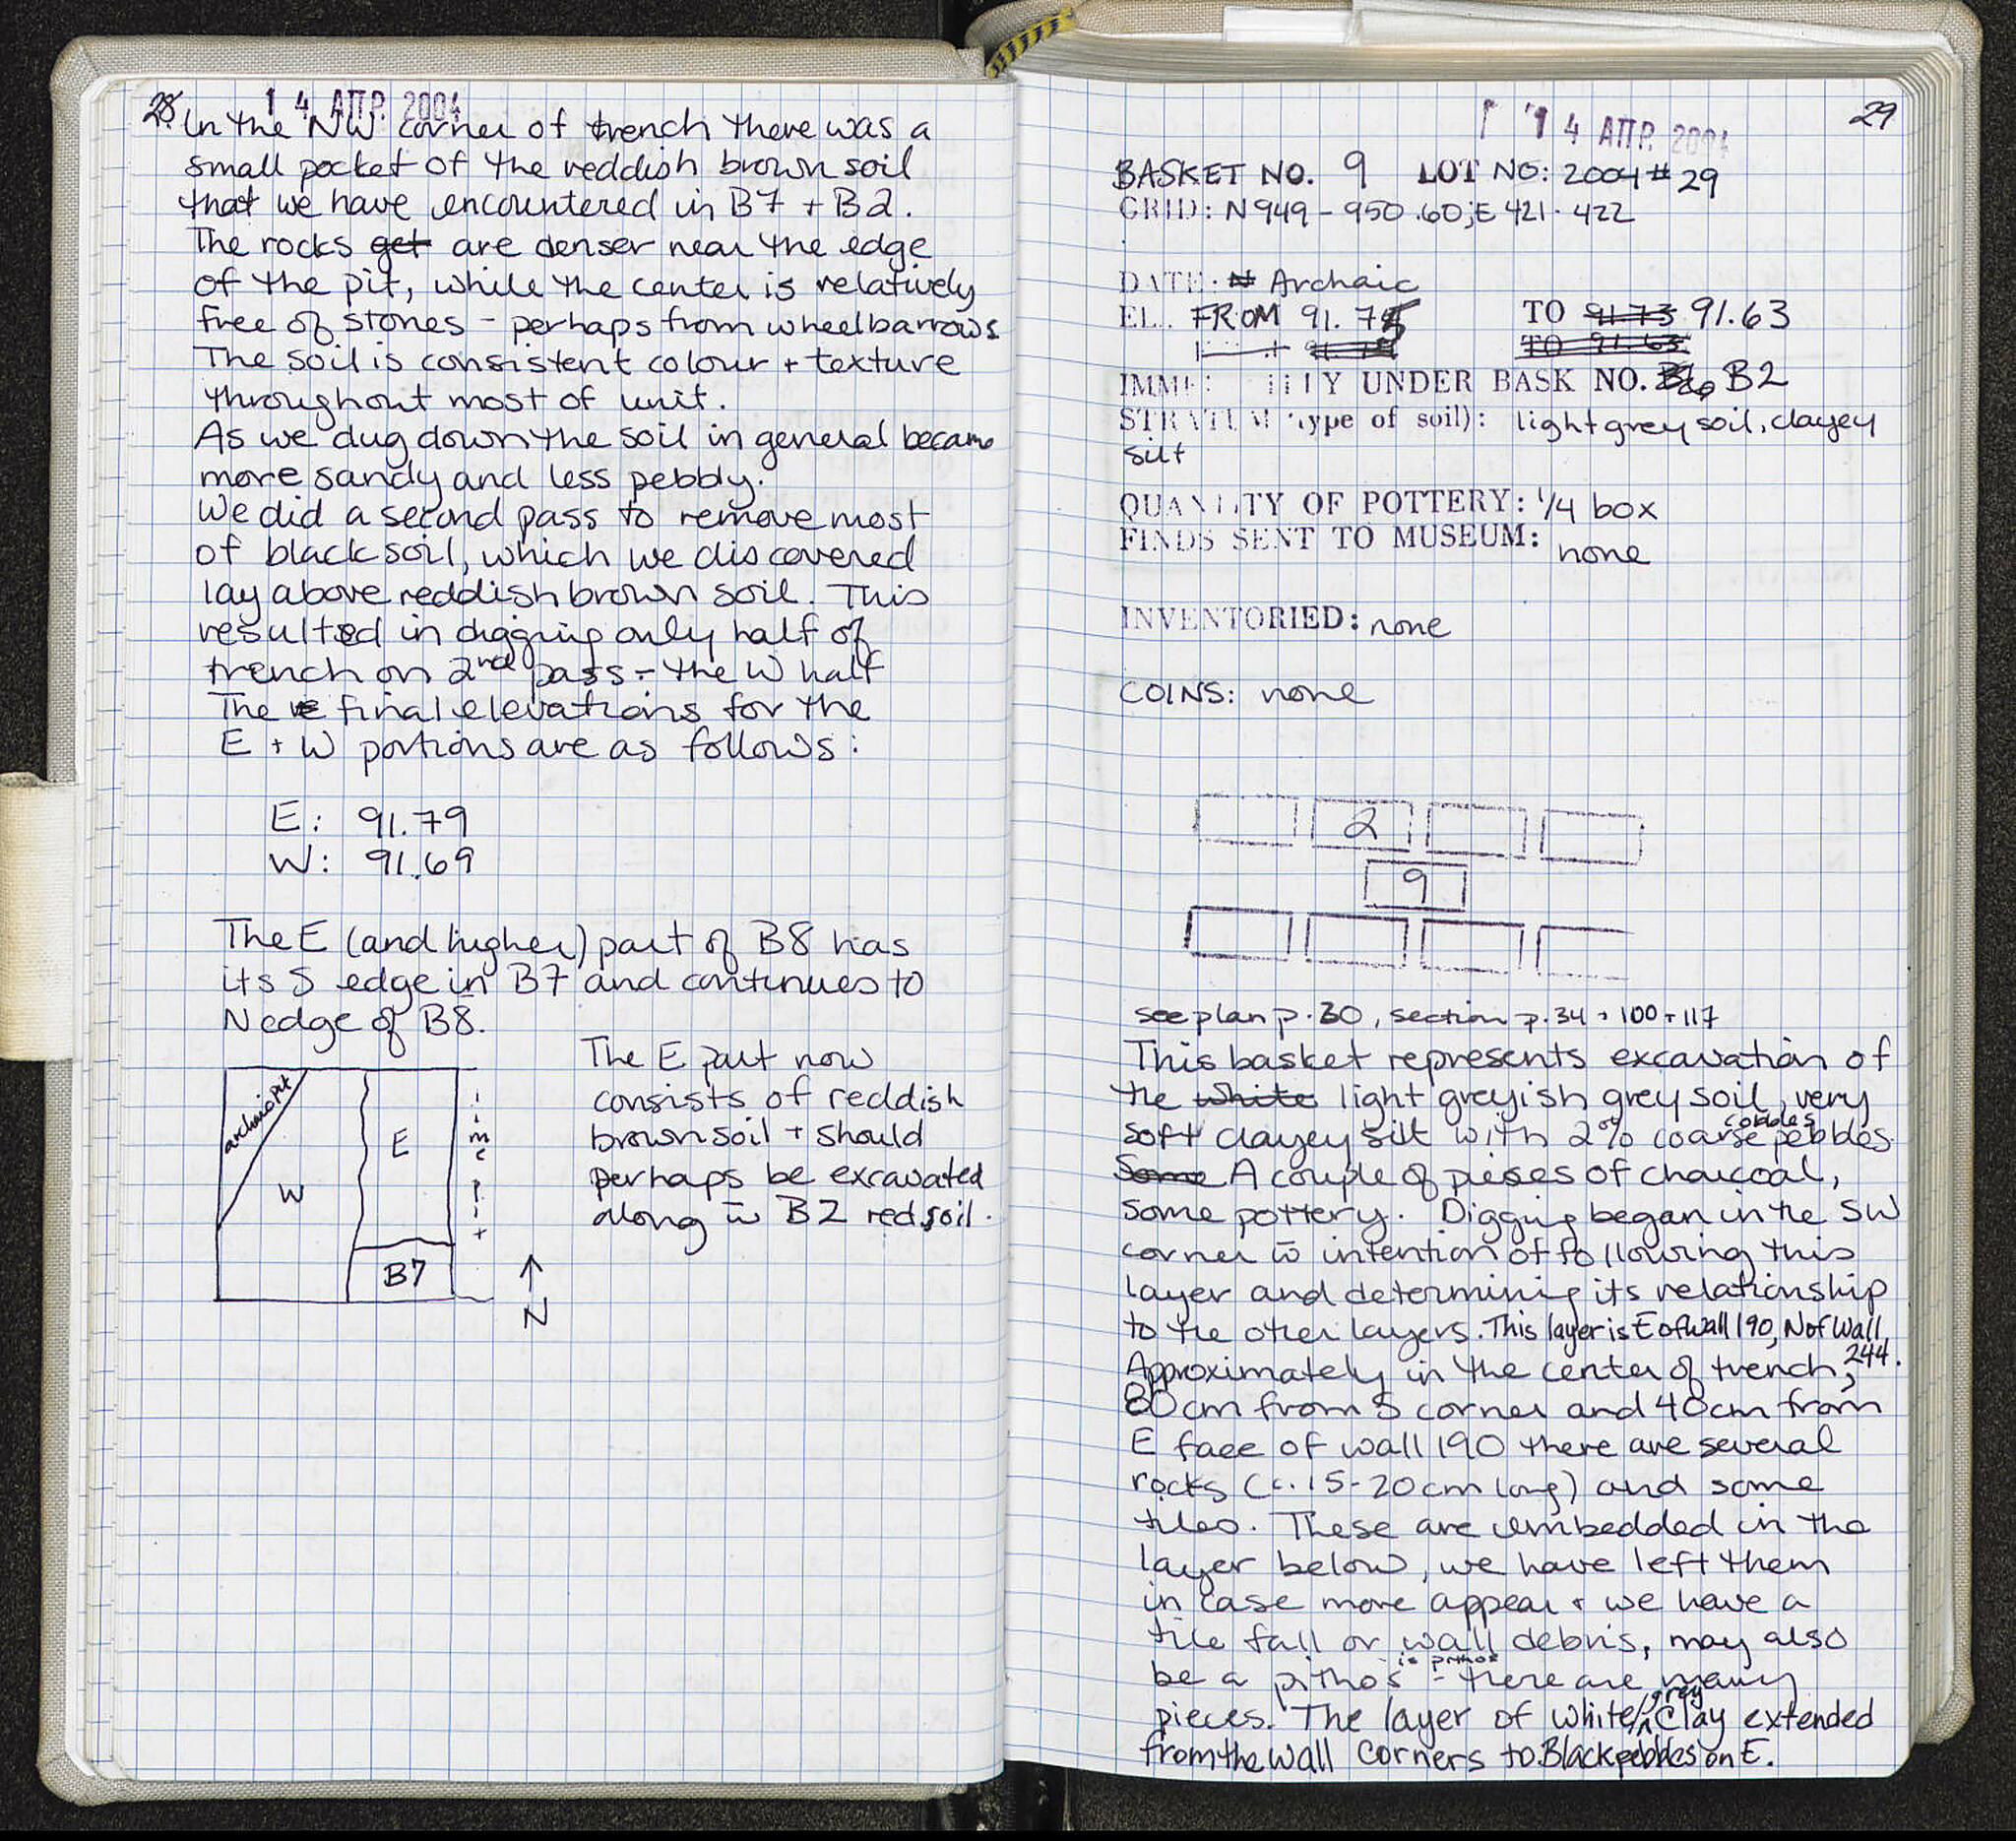 28.
1 4 ΑΠΡ. 2004
In the NW corner of trench there was a
small pocket of the reddish brown soil
that we have encountered in B7 + B2.
The rocks get are denser near the edge
of the pit, while the center is relatively
free of stones - perhaps from wheelbarrows
The soil is consistent colour + texture
throughout most of unit.
As we dug down the soil in general became
more sandy and less pebbly.
We did a second pass to remove most
of black soil, which we discovered
lay above reddish brown soil. This
resulted in digging only half of
trench on 2nd pass - the W half
The final elevations for the
E + W portions are as follows:
E: 91.79
W: 91.69
The E (and higher) part of B8 has
its S edge in B7 and continues to
N edge of B8.
The E part now
consists of reddish
brown soil + should
perhaps be excavated
along w̄ B2 red soil.
archaic Pit
W
E
B7
pit
↑
N
29
1 4 ΑΠΡ. 2004
BASKET NO. 9 LOT NO: 2004 # 29
GRID: N 949 - 950.60; E 421 - 422
DATE: Archaic
EL. FROM 91.75 TO 91.73 91.63
TO 91.63
IMME ITLY UNDER BASK NO. B2
STRATUM type of soil): light grey soil, clayey
silt
QUANTITY OF POTTERY: 1/4 box
FINDS SENT TO MUSEUM: none
INVENTORIED: none
COINS: none
2
9
see plan p. 30, section p. 34 + 100 + 117
This basket represents excavation of
the white light greyish grey soil, very
soft clayey silt with 2% coarse pebbles. cobbles
Some A couple of pieses of charcoal,
some pottery. Digging began in the SW
corner w̄ intention of following this
layer and determining its relationship
to the other layers. This layer is E of Wall 190, N of Wall
244.
Approximately in the center of trench,
80cm from S corner and 40cm from
E face of wall 190 there are several
rocks (c. 15-20cm long) and some
tiles. These are embedded in the
layer below, we have left them
in case more appear + we have a
tile fall or wall debris, may also
be a pithos - there are many
is pithos
pieces. The layer of white/grey clay extended
from the wall corners to Black pebbles on E.